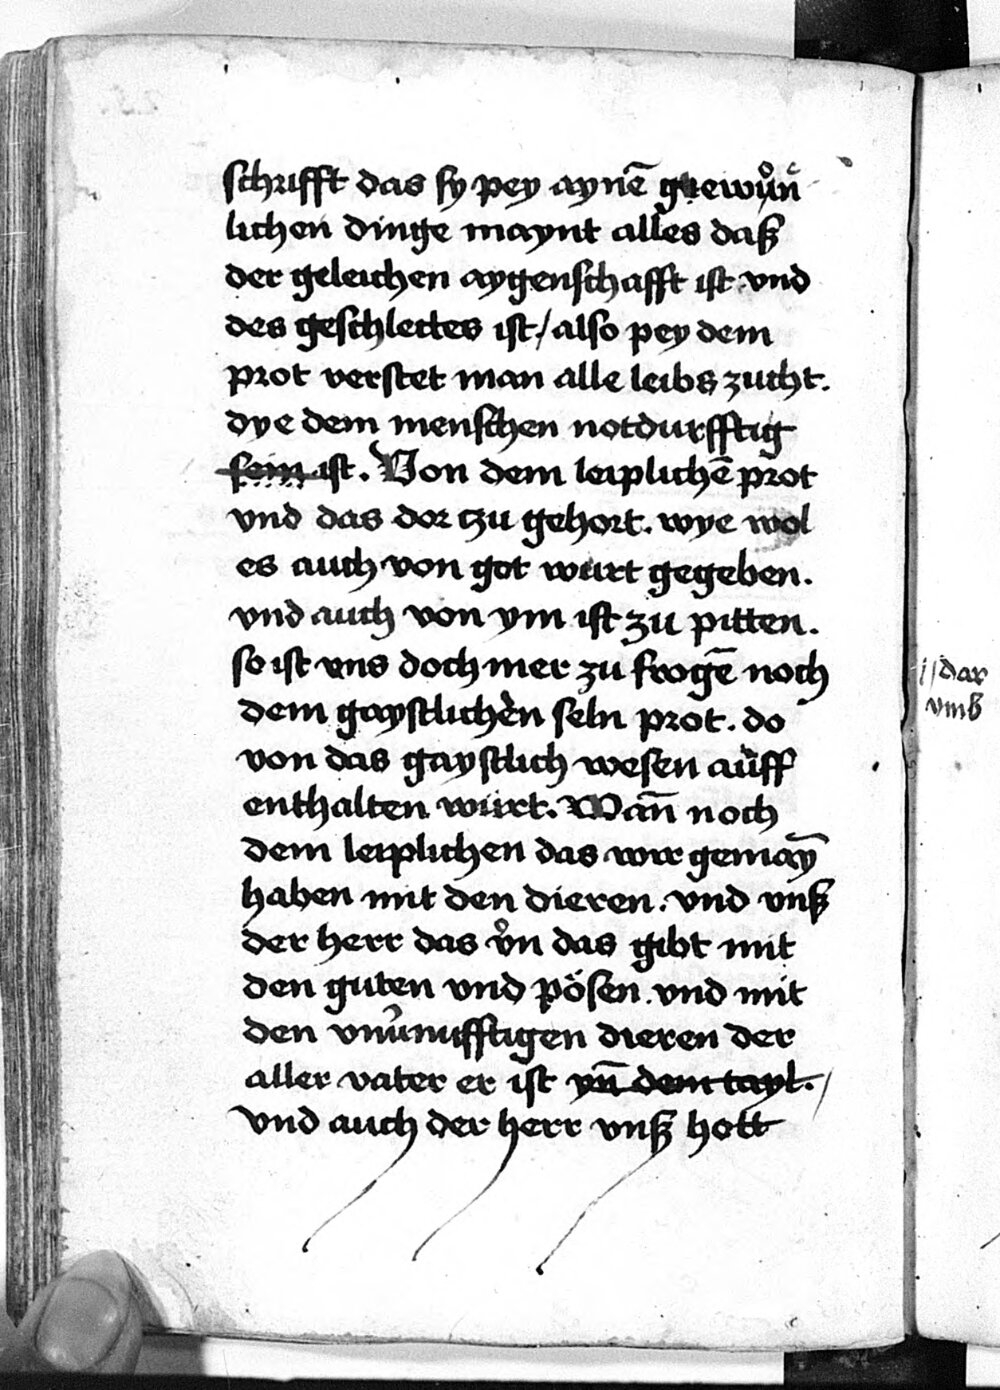 schrifft das sy pey aynē gewůn
lichen dinge maynt alles daß
der geleichen aygenschafft ist vnd
des geschlettes ist / also pey dem
prot verstet man alle leibs zucht.
dye dem menschen notdurfftig
sein ist. Von dem leiplichē prot
vnd das dor tzu gehort. wye wol
es auch von got wurt gegeben.
vnd auch von ym ist zu pitten.
so ist vns doch mer zu frogē noch
dem gaystlichen seln prot. do
von das gaystlich wesen auff
enthalten würt. Wañ noch
dem leiplichen das wir gemaȳ
haben mit den dieren. vnd vnß
der herr das ůn das gibt mit
den guten vnd pösen. vnd mit
den vnu̓nufftigen dieren der
aller vater er ist yn̄ dem tayl. /
vnd auch der herr vnß hott
// dar
vmb